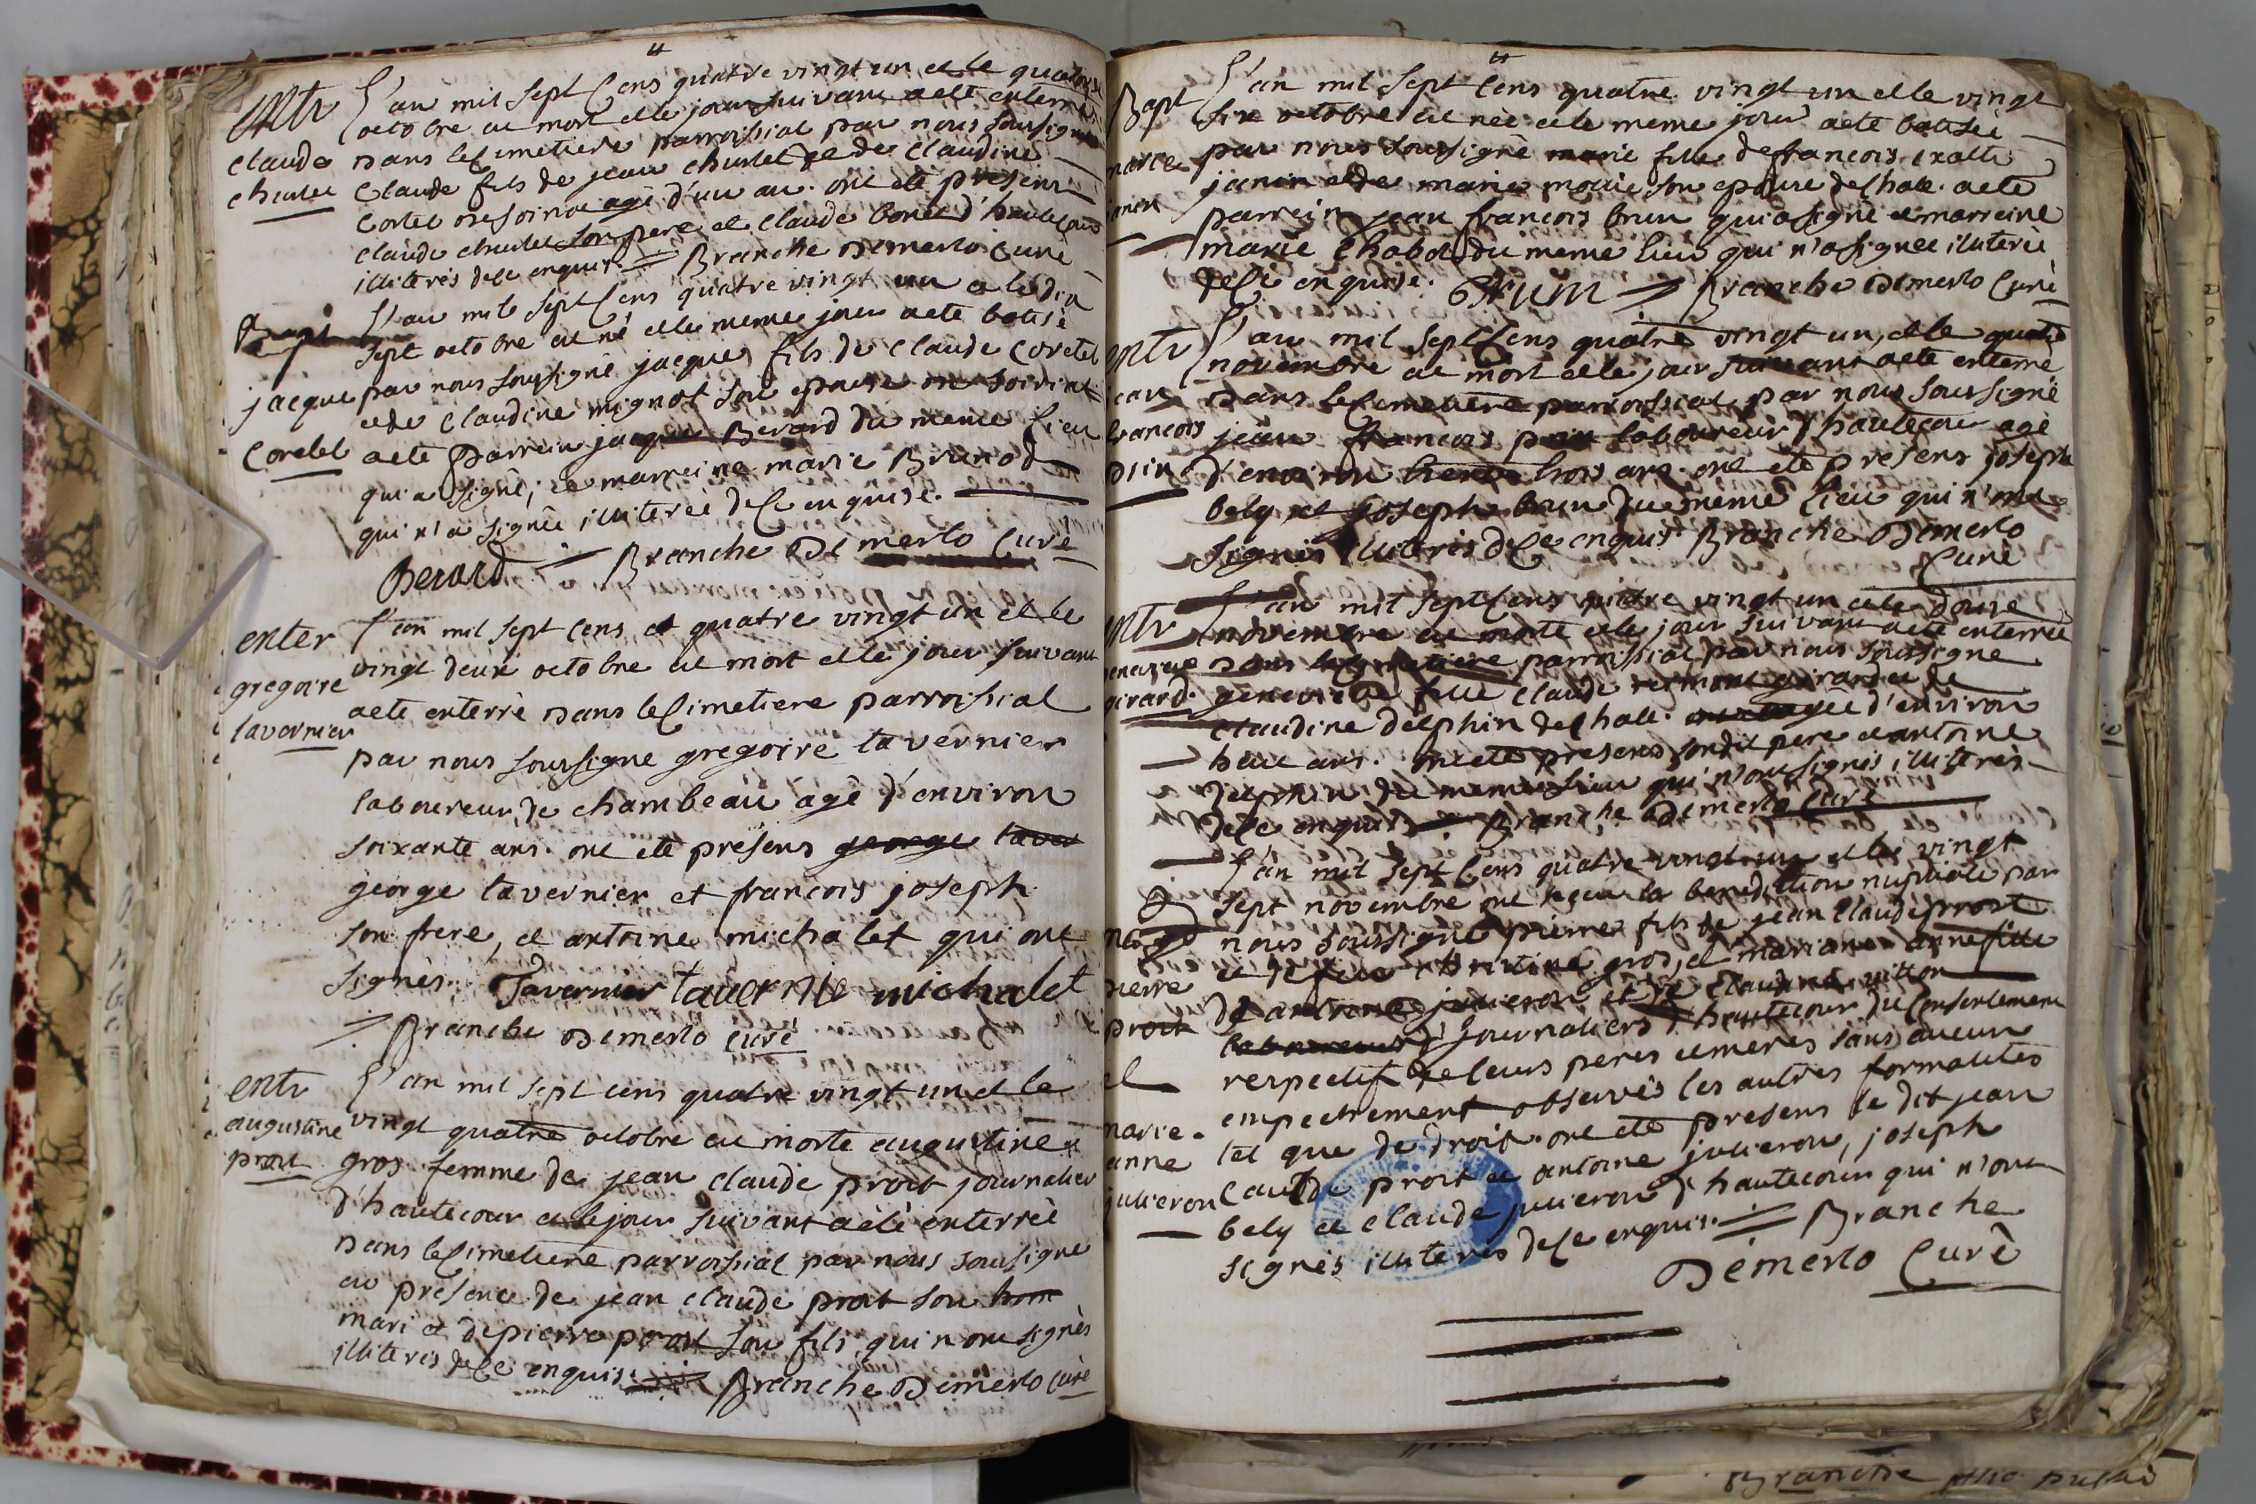 entr
claude
churlet
L'an mil sept cens quatre vingt un et le quatorze
octobre est mort et le jour suivant a eté enterré
dans le cimetiere parroissial par nous soussigné
claude fils de jean churlet et de claudine
cortet de soiria agé d'un an. ont eté presens
claude churlet son pere et claude bonet d'hautecour
illiterés de ce enquis. Branche Demerlo curé
Bapt
jacque
Coretel
L'an mil sept cens quatre vingt un et le dix
sept octobre est né et le meme jour a eté batisé
par nous soussigné jacques fils de claude coretel
et de claudine mignot son epouse de soiria
a eté parrein jacque Berard du meme lieu
qui a signé, et marreine marie Brunod
qui n'a signée illiterée de ce enquise.
Berard Branche Demerlo Curé
enter
gregoire
tavernier
L'an mil sept cens et quatre vingt un et le
vingt deux octobre est mort et le jour suivant
a eté enterré dans le cimetiere parroissial
par nous soussigné gregoire tavernier
laboureur de chambeau agé d'environ
soixante ans. ont eté presens george taver
george tavernier et francois joseph
son frere, et antoine michalet qui ont
signés. Tavernier tavernie michalet
Branche Demerlo curé
entr
augustine
prost
L'an mil sept cens quatre vingt un et le
vingt quatre octobre est morte augustine
gros femme de jean claude prost journalier
d'hautecour et le jour suivant a eté enterrée
dans le cimetiere parroissial par nous soussigné
en presence de jean claude prost son hom
mari et de pierre prost son fils, qui n'ont signés
illiterés de ce enquis. Branche Demerlo curé
Bapt
marie
janin
L'an mil sept cens quatre vingt un et le vingt
six octobre est née et le meme jour a eté batisée
par nous soussigné marie fille de francois
janin et de marie son epouse de la chall. a eté
parrein jean francois brun qui a signé et marreine
marie Chabod du meme lieu qui n'a signée illiterée
de ce enquise. BRUN Branche Demerlo Curé
entr
jean
francois
prin
L'an mil sept cens quatre vingt un, et le quatre
novembre est mort et le jour suivant a eté enterré
dans le cimetiere parroissial par nous soussigné
jean francois laboureur d'hautecour agé
d'environ trente trois ans. ont eté presens joseph
bely et joseph brun du meme lieu qui n'ont
signés illiterés de ce enquis. Branche Demerlo
Curé
entr
girard
L'an mil sept cens quatre vingt un et le douze
novembre est morte et le jour suivant a eté enterrée
dans le cimetiere parroissial par nous soussigné
genevieve fille claude girard et de
claudine delphin de la chall. agée d'environ
huit ans. ont eté presens son dit pere et antoine
delphin du meme lieu qui n'ont signés illiterés
de ce enquis. Branche Demerlo curé
pierre
prost
et
marie
anne
julieron
L'an mil sept cens quatre vingt un et le vingt
sept novembre ont reçeu la benediction nuptiale par
nous soussigné pierre fils de jean claude prost
et de feue gros, et marianne anne fille
de antoine julieron et de claudine vitton
laboureurs journaliers d'hautecour du consentement
respectif de leurs peres et meres sans aucun
empechement observés les autres formalités
tel que de droit. ont eté presens le dit jean
claude prost et antoine julieron, joseph
bely et claude julieron d'hautecour qui n'ont
signés illiterés de ce enquis. Branche
Demerlo Curé
Branche